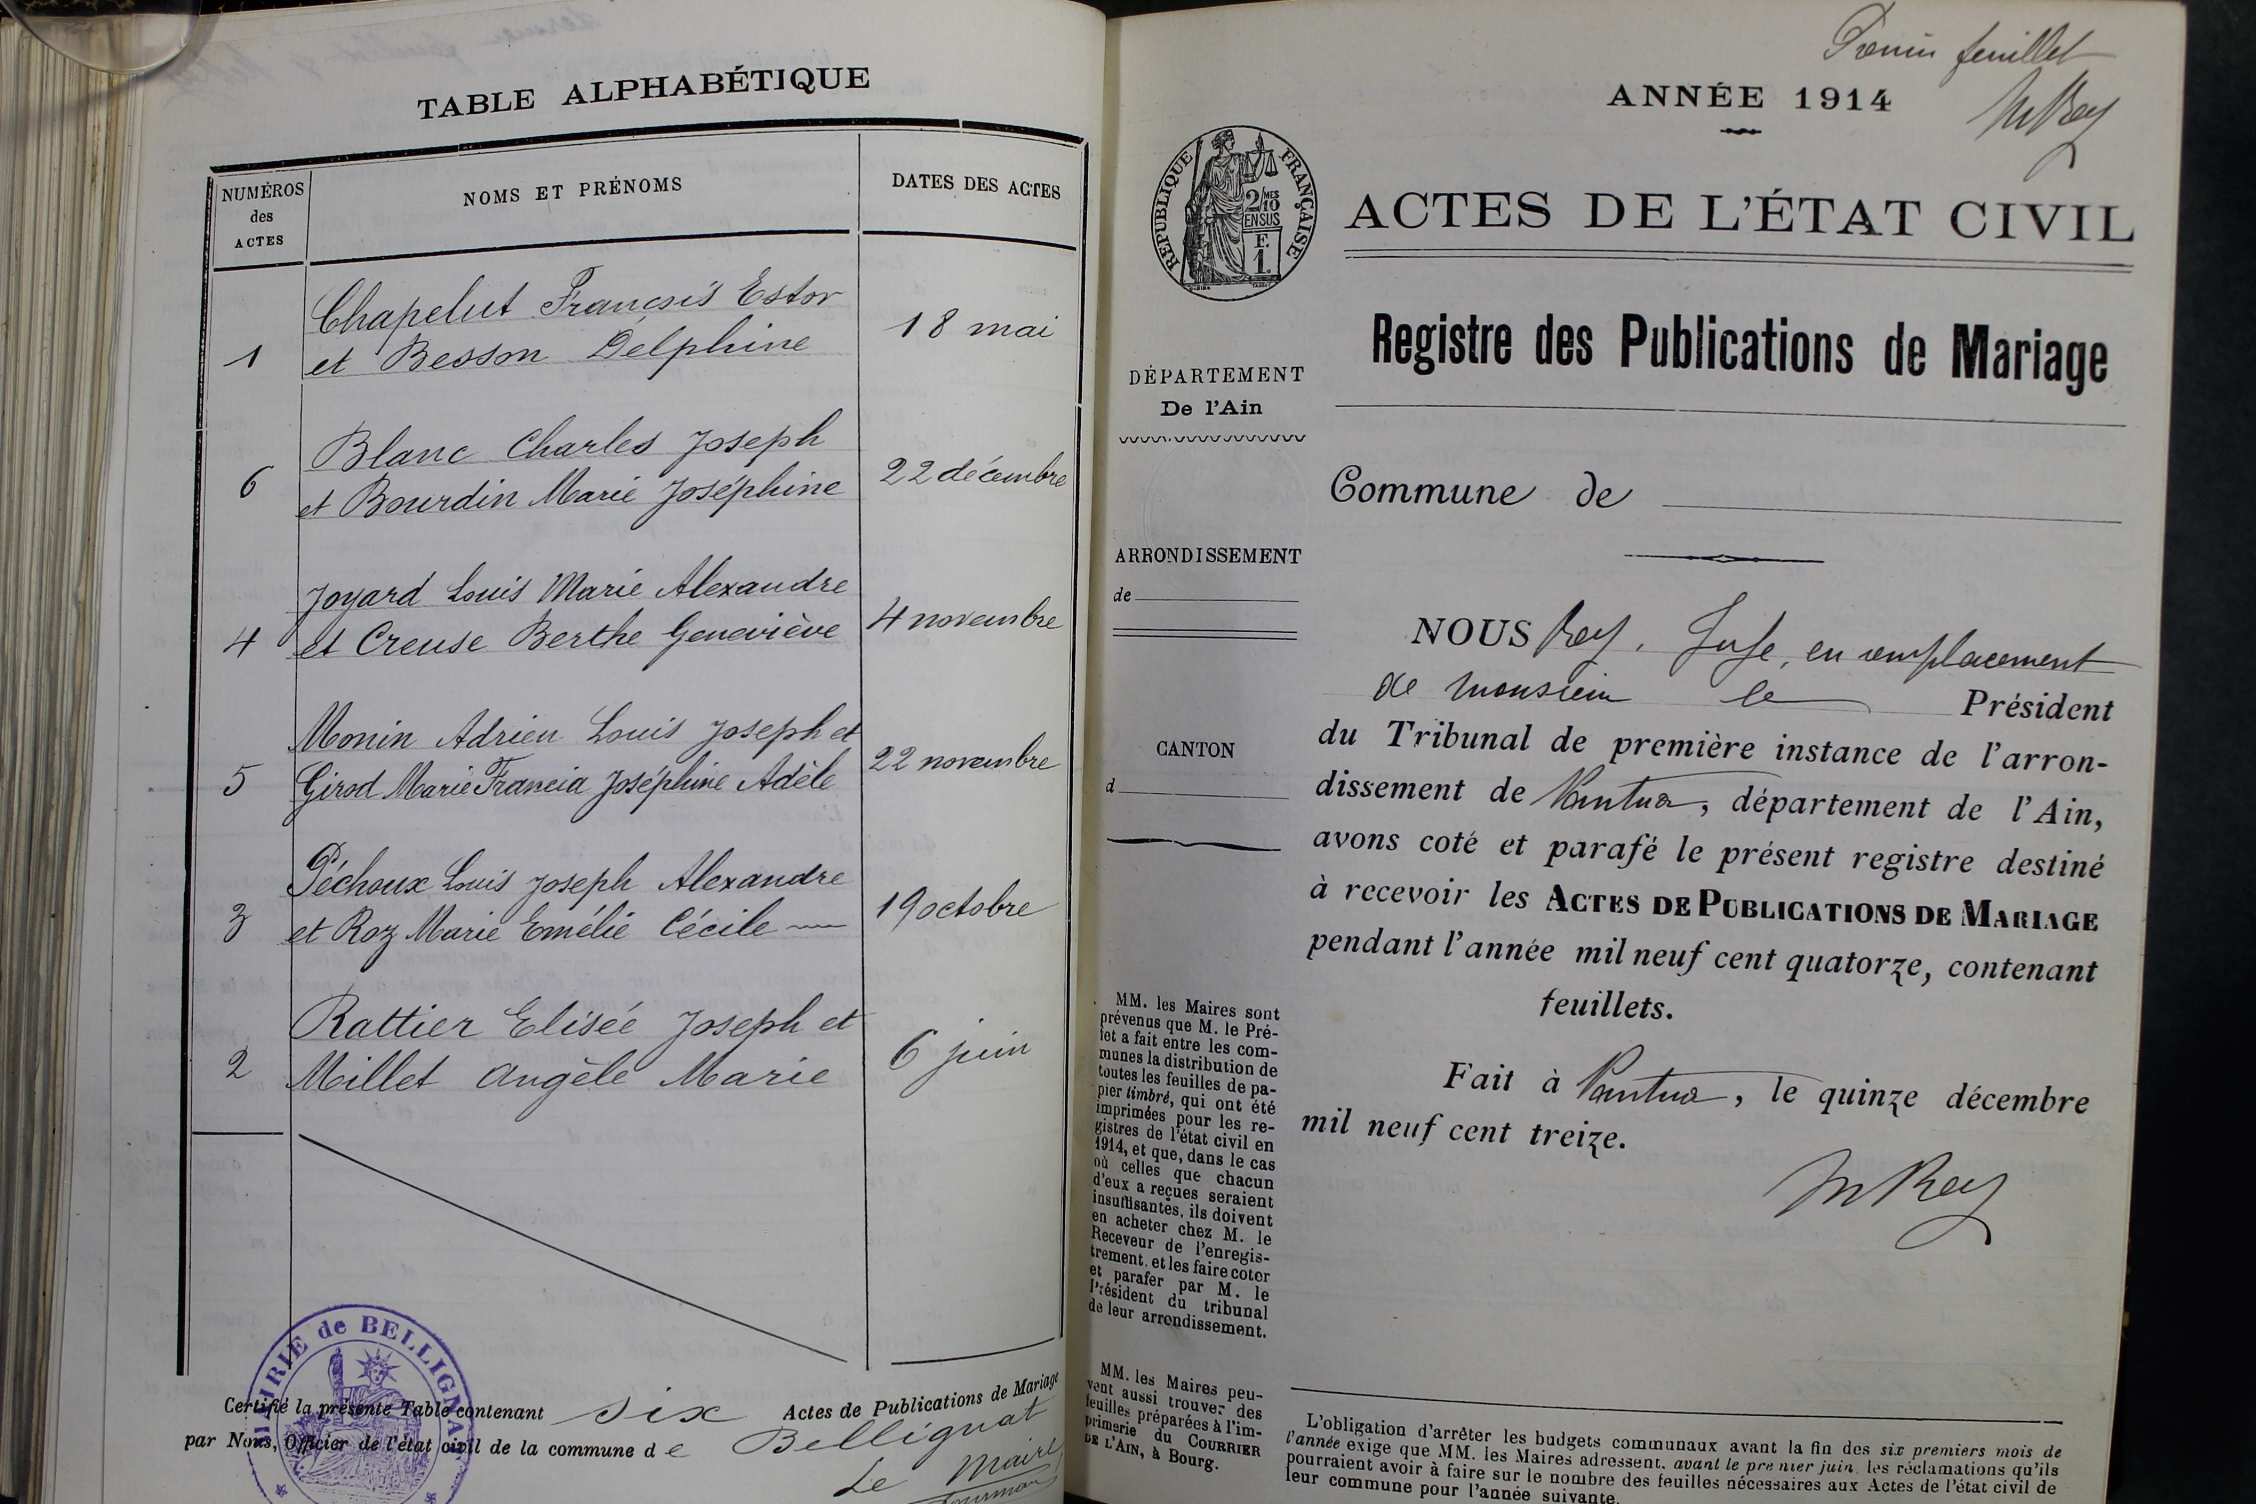 TABLE ALPHABÉTIQUE
NUMÉROS
des
ACTES
NOMS ET PRÉNOMS
DATES DES ACTES
Chapelut François Estor
1 et Besson Delphine 18 mai
Blanc Charles Joseph
6 et Bourdin Marie Joséphine 22 décembre
Joyard Louis Marie Alexandre
4 et Creuse Berthe Geneviève 4 novembre
Monin Adrien Louis Joseph et
5 Girod Marie Francia Joséphine Adèle 22 novembre
Péchoux Louis Joseph Alexandre
3 et Roz Marie Emélie Cécile 19 octobre
Rattier Elisée Joseph et
2 Millet Angèle Marie 6 juin
MAIRIE de BELLIGNAT
Certifié la présente Table contenant six Actes de Publications de Mariage
par Nous, Officier de l'état civil de la commune de Bellignat
Le Maire
Premier feuillet
ANNÉE 1914
MRey
RÉPUBLIQUE FRANÇAISE
2/10 MES
EN SUS
F.
1.
ACTES DE L'ÉTAT CIVIL
Registre des Publications de Mariage
DÉPARTEMENT
De l'Ain
Commune de
ARRONDISSEMENT
de
CANTON
d
NOUS Rey, Juge, en remplacement
de monsieur le Président
du Tribunal de première instance de l'arron-
dissement de Nantua, département de l'Ain,
avons coté et parafé le présent registre destiné
à recevoir les ACTES DE PUBLICATIONS DE MARIAGE
pendant l'année mil neuf cent quatorze, contenant
feuillets.
Fait à Nantua, le quinze décembre
mil neuf cent treize.
MRey
MM. les Maires sont
prévenus que M. le Pré-
fet a fait entre les com-
munes la distribution de
toutes les feuilles de pa-
pier timbré, qui ont été
imprimées pour les re-
gistres de l'état civil en
1914, et que, dans le cas
où celles que chacun
d'eux a reçues seraient
insuffisantes, ils doivent
en acheter chez M. le
Receveur de l'enregis-
trement, et les faire coter
et parafer par M. le
Président du tribunal
de leur arrondissement.
MM. les Maires peu-
vent aussi trouver des
feuilles préparées à l'im-
primerie du COURRIER
DE L'AIN, à Bourg.
L'obligation d'arrêter les budgets communaux avant la fin des six premiers mois de
l'année exige que MM. les Maires adressent, avant le premier juin, les réclamations qu'ils
pourraient avoir à faire sur le nombre des feuilles nécessaires aux Actes de l'état civil de
leur commune pour l'année suivante.